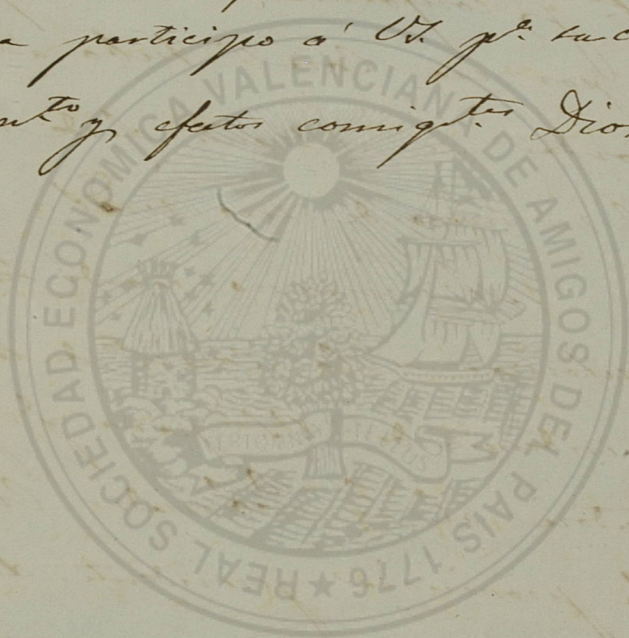 a participo á VS. p.ª su c
n.to y efectos consig.tes Dios
REAL SOCIEDAD ECONOMICA VALENCIANA DE AMIGOS DEL PAIS 1776 ★